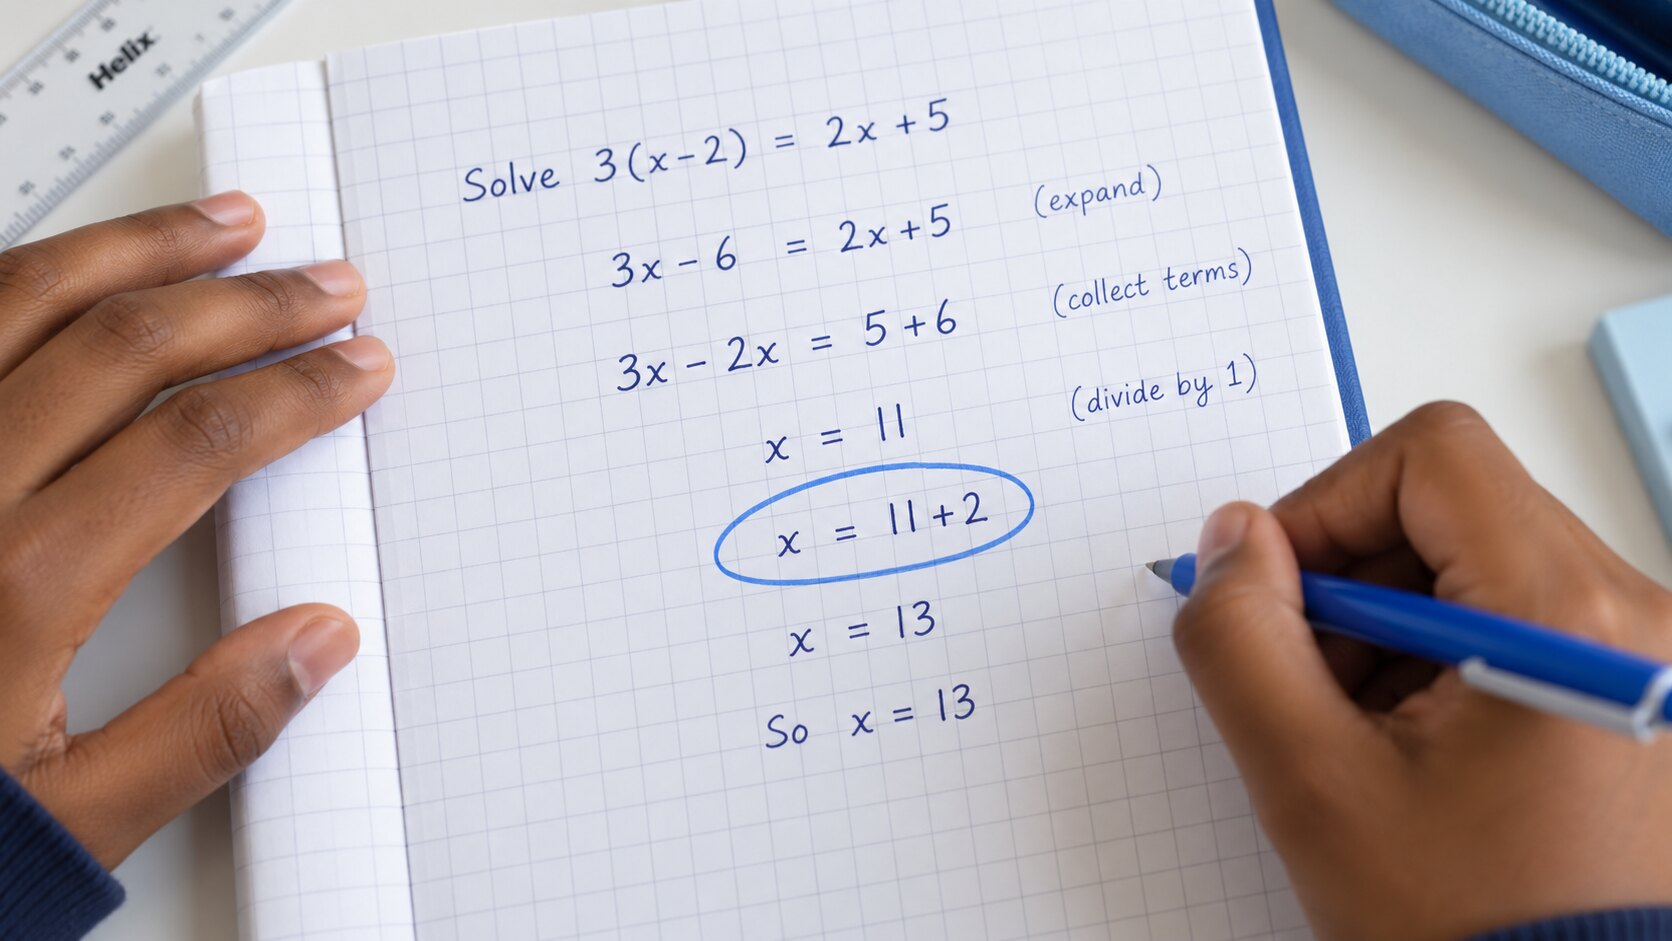 Helix
Solve 3(x-2) = 2x+5
3x-6 = 2x+5 (expand)
3x-2x = 5+6 (collect terms)
x = 11 (divide by 1)
x = 11+2
x = 13
So x = 13